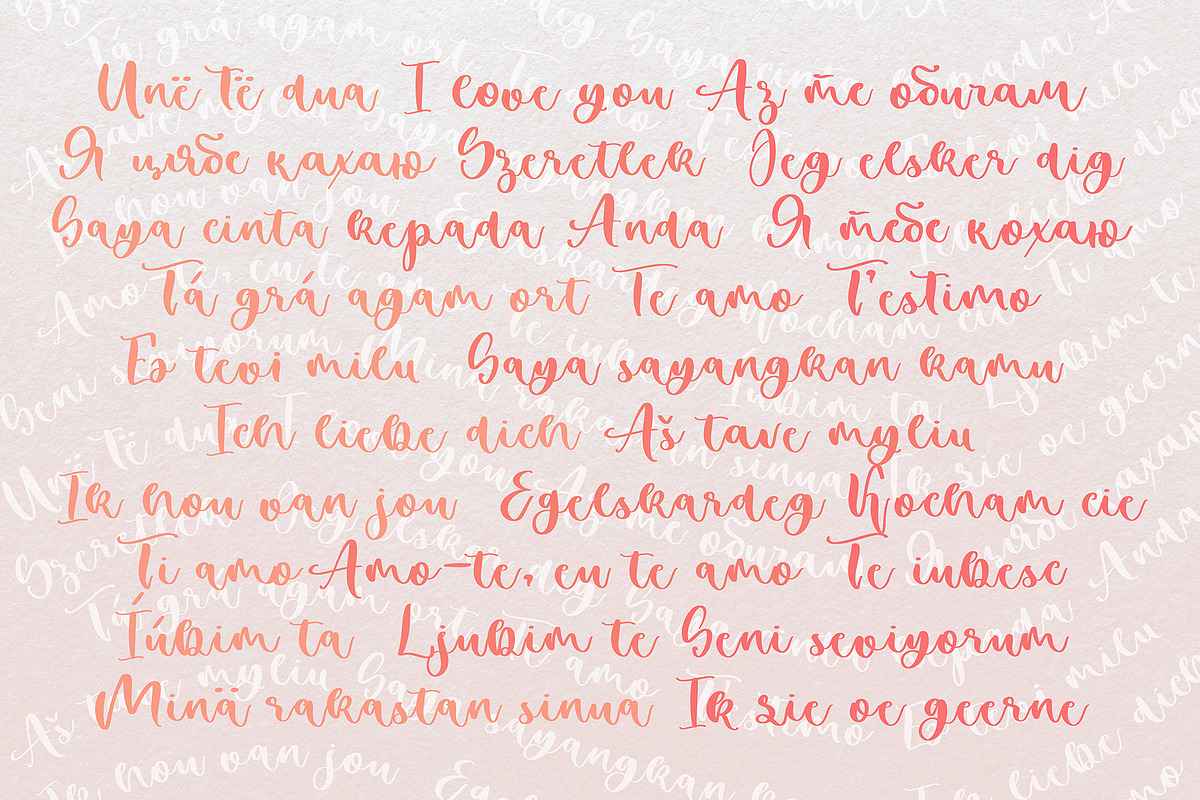 Unë të dua I love you Аз те обичам
Я цябе кахаю Szeretlek Jeg elsker dig
Saya cinta kepada Anda Я тебе кохаю
Tá grá agam ort Te amo T'estimo
Es tevi milu Saya sayangkan kamu
Ich liebe dich Aš tave myliu
Ik hou van jou Egelskardeg Kocham cie
Ti amo Amo-te, eu te amo Te iubesc
Íúbim ta Ljubim te Seni seviyorum
Minä rakastan sinua Ik zie oe geerne